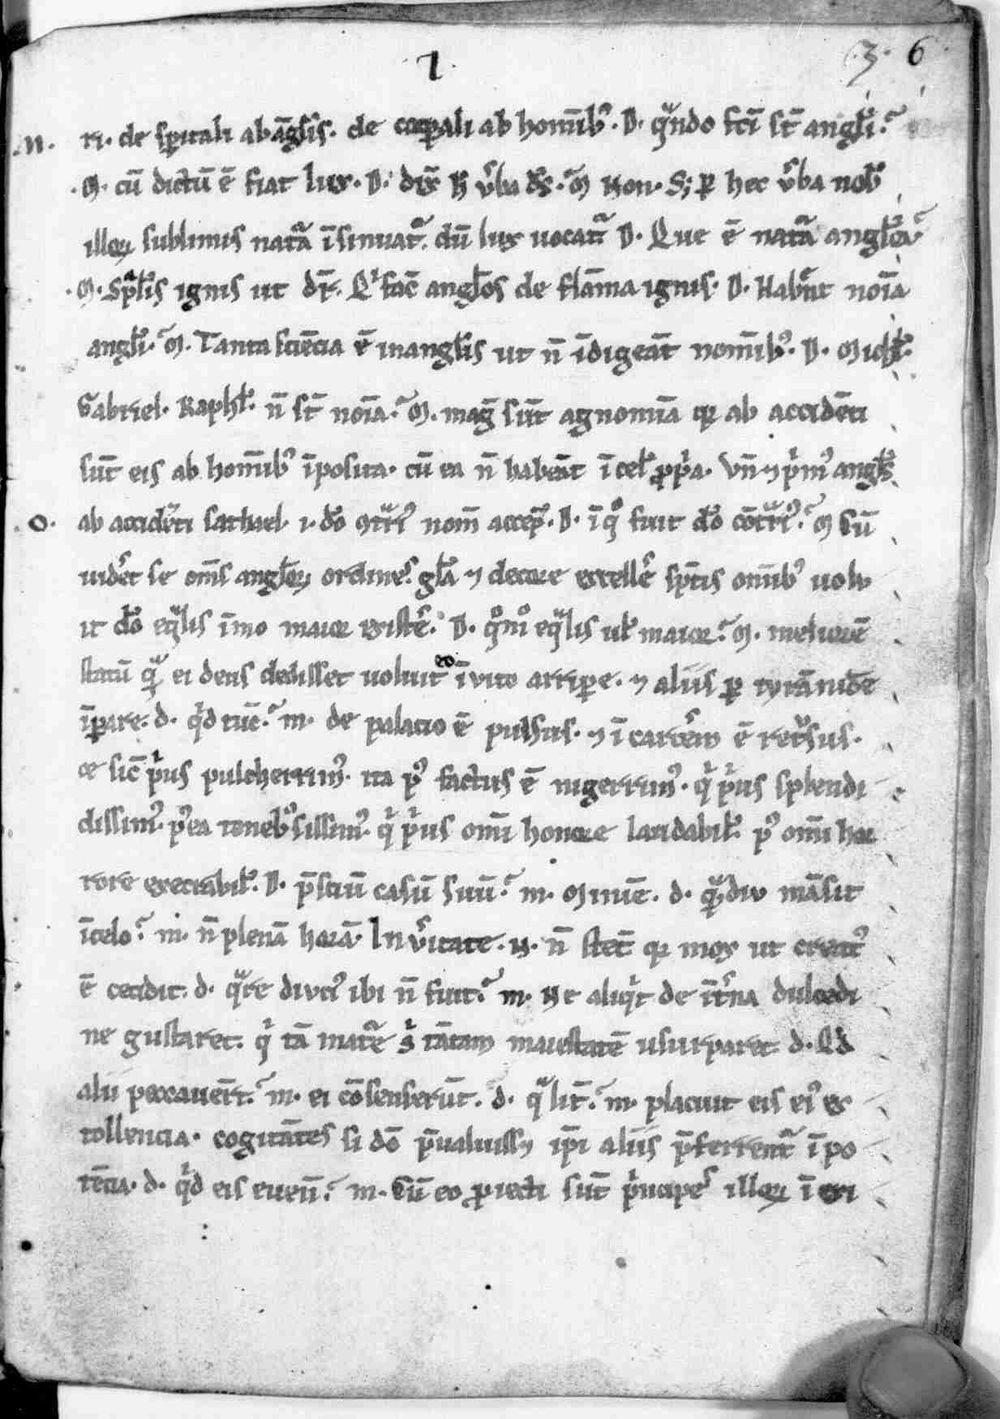 I
.3. 6
.N. ri. de spiritali ab anglis. de corporali ab hominib⁊. D. qᵃndo fcī st̄ angli?
.M. cū dictū ē fiat lux. D. dix̄ h̄ v̄ba ds̄? M. Non. S; ꝑ hec v̄ba nob̄
illoꝝ sublimis natᵃ īsinuatᷓ. dū lux uocatᷓ. D. Que ē natᵃ anglica?
.M. Sp̄lis ignis ut dr̄. Qⁱ facit anglos de flāma ignis. D. Habent noīa
angli? M. Tanta sciēcia ē in anglis ut n̄ īdigeāt nomīb⁊. D. Mich̄l.
Gabriel. Raph̄l. n̄ st̄ noīa? M. mag̃ sūt agnomīa qr ab accidēti
sūt eis ab homīb⁊ īposita. cū ea n̄ habeāt ī cel̄ ꝓpⁱa. Vn̄ ⁊ pⁱm⁊ angl̄s
.O. ab accidēti sathael .i. do ꝯtᵃri⁊ nom̄ accep̄. D. ī qᵒ fuit do cōtᵃri⁊? M. Cū
uidēt se om̄s angloꝝ ordines glā ⁊ decore excellē sp̄tis omīb⁊ uolu
it do eqᵃlis īmo maior existē. D. qᵒmᵒ eqᵃlis ul̄ maior? M. meliorē
statū qᵃ ei deus dedisset uoluit eo īvito arripe. ⁊ aliis ꝑ tyrānidē
īpare. d. qⁱd tūc? m. de palacio ē pulsus. ⁊ ī carcerem ē retrusus.
et sic̄ pⁱus pulcherrim⁊. ita p⁊ factus ē nigerrim⁊. qⁱ pⁱus splendi
dissim⁊. p⁊ea tenebrosissim⁊. qⁱ pⁱus omī honore laudabil̄. p⁊ omī hor
rore execrabil̄. D. p̄sciū casū suū? m. Minīe. d. qᵃdiu māsit
ī celo? m. n̄ plenā horā. In v̄itate .N. n̄ stet̄ qr mox ut creat⁊
ē cecidit. d. qᵃre diuci⁊ ibi n̄ fuit? m. Ne aliqⁱt de īt̄na dulcedi
ne gustaret. qⁱ tā matᵉ sⁱ tātam maiestatē usurparet. d. Qd
alii peccauer̄t? m. ei cōsenserūt. d. qᵃlit̄? m. placuit eis ei⁊ ex
tollencia. cogitātes si do p̄ualuiss; ip̄i aliis p̄ferrentᷓ ī po
tēcia. d. qⁱd eis euen̄? m. Cū eo ꝓiecti sūt pⁱncipes illoꝝ ī exi